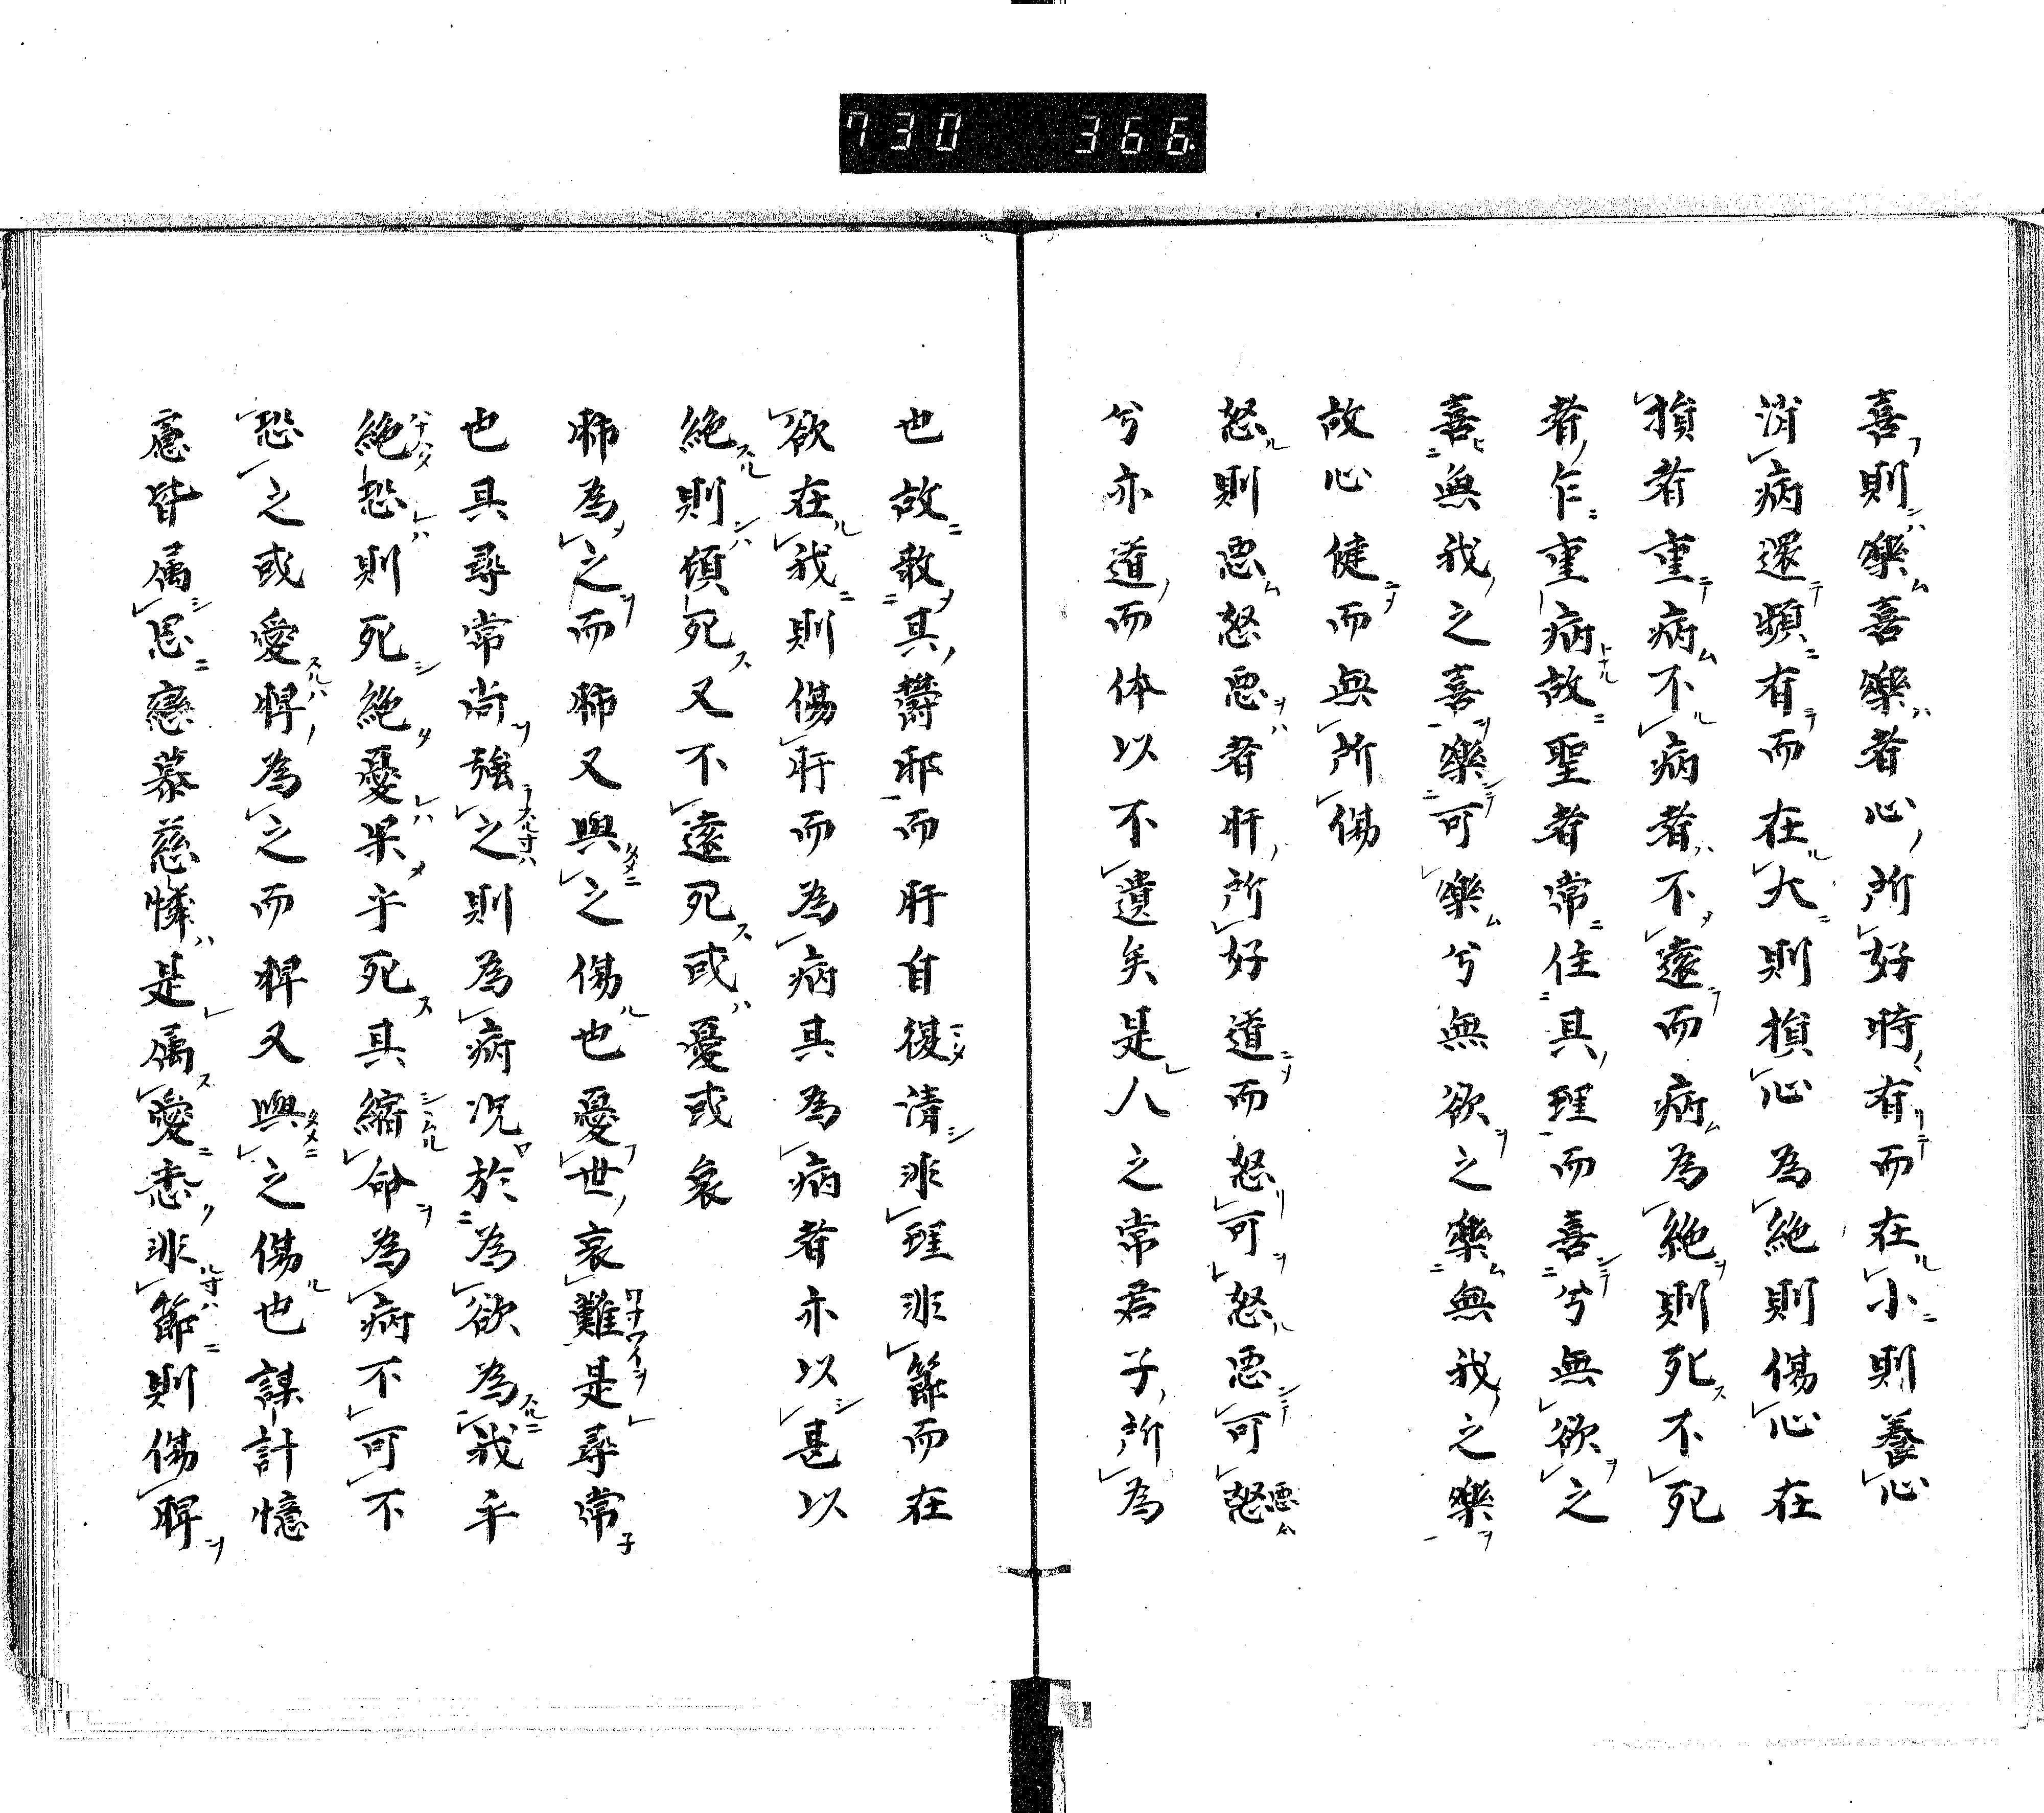 730 366.
喜則樂喜樂者心所好時有而在小則養心
消病還頻有而在大則損心為絶則傷心在
損者重病不病者不遠而病為絶則死不死
者乍重病故聖者常住其理而喜兮無欲之
喜無我之喜樂可樂兮無欲之樂無我之樂
故心健而無所傷
怒則悪怒悪者肝所好道而怒可怒悪可怒悪
兮亦道而体以不遺矣是人之常君子所為
也故敢其欝邪而肝自復清非理非節而在
欲在我則傷肝而為病其為病者亦以甚以
絶則頓死又不遠死或憂或哀
肺為之而肺又與之傷也憂世哀難是尋常
也具尋常尚強之則為病况於為欲為我乎
絶恐則死絶憂果乎死其縮命為病不可不
恐之或愛憚為之而脾又與之傷也謀計憶
慮皆属思戀慕慈憐是属愛悉非節則傷脾